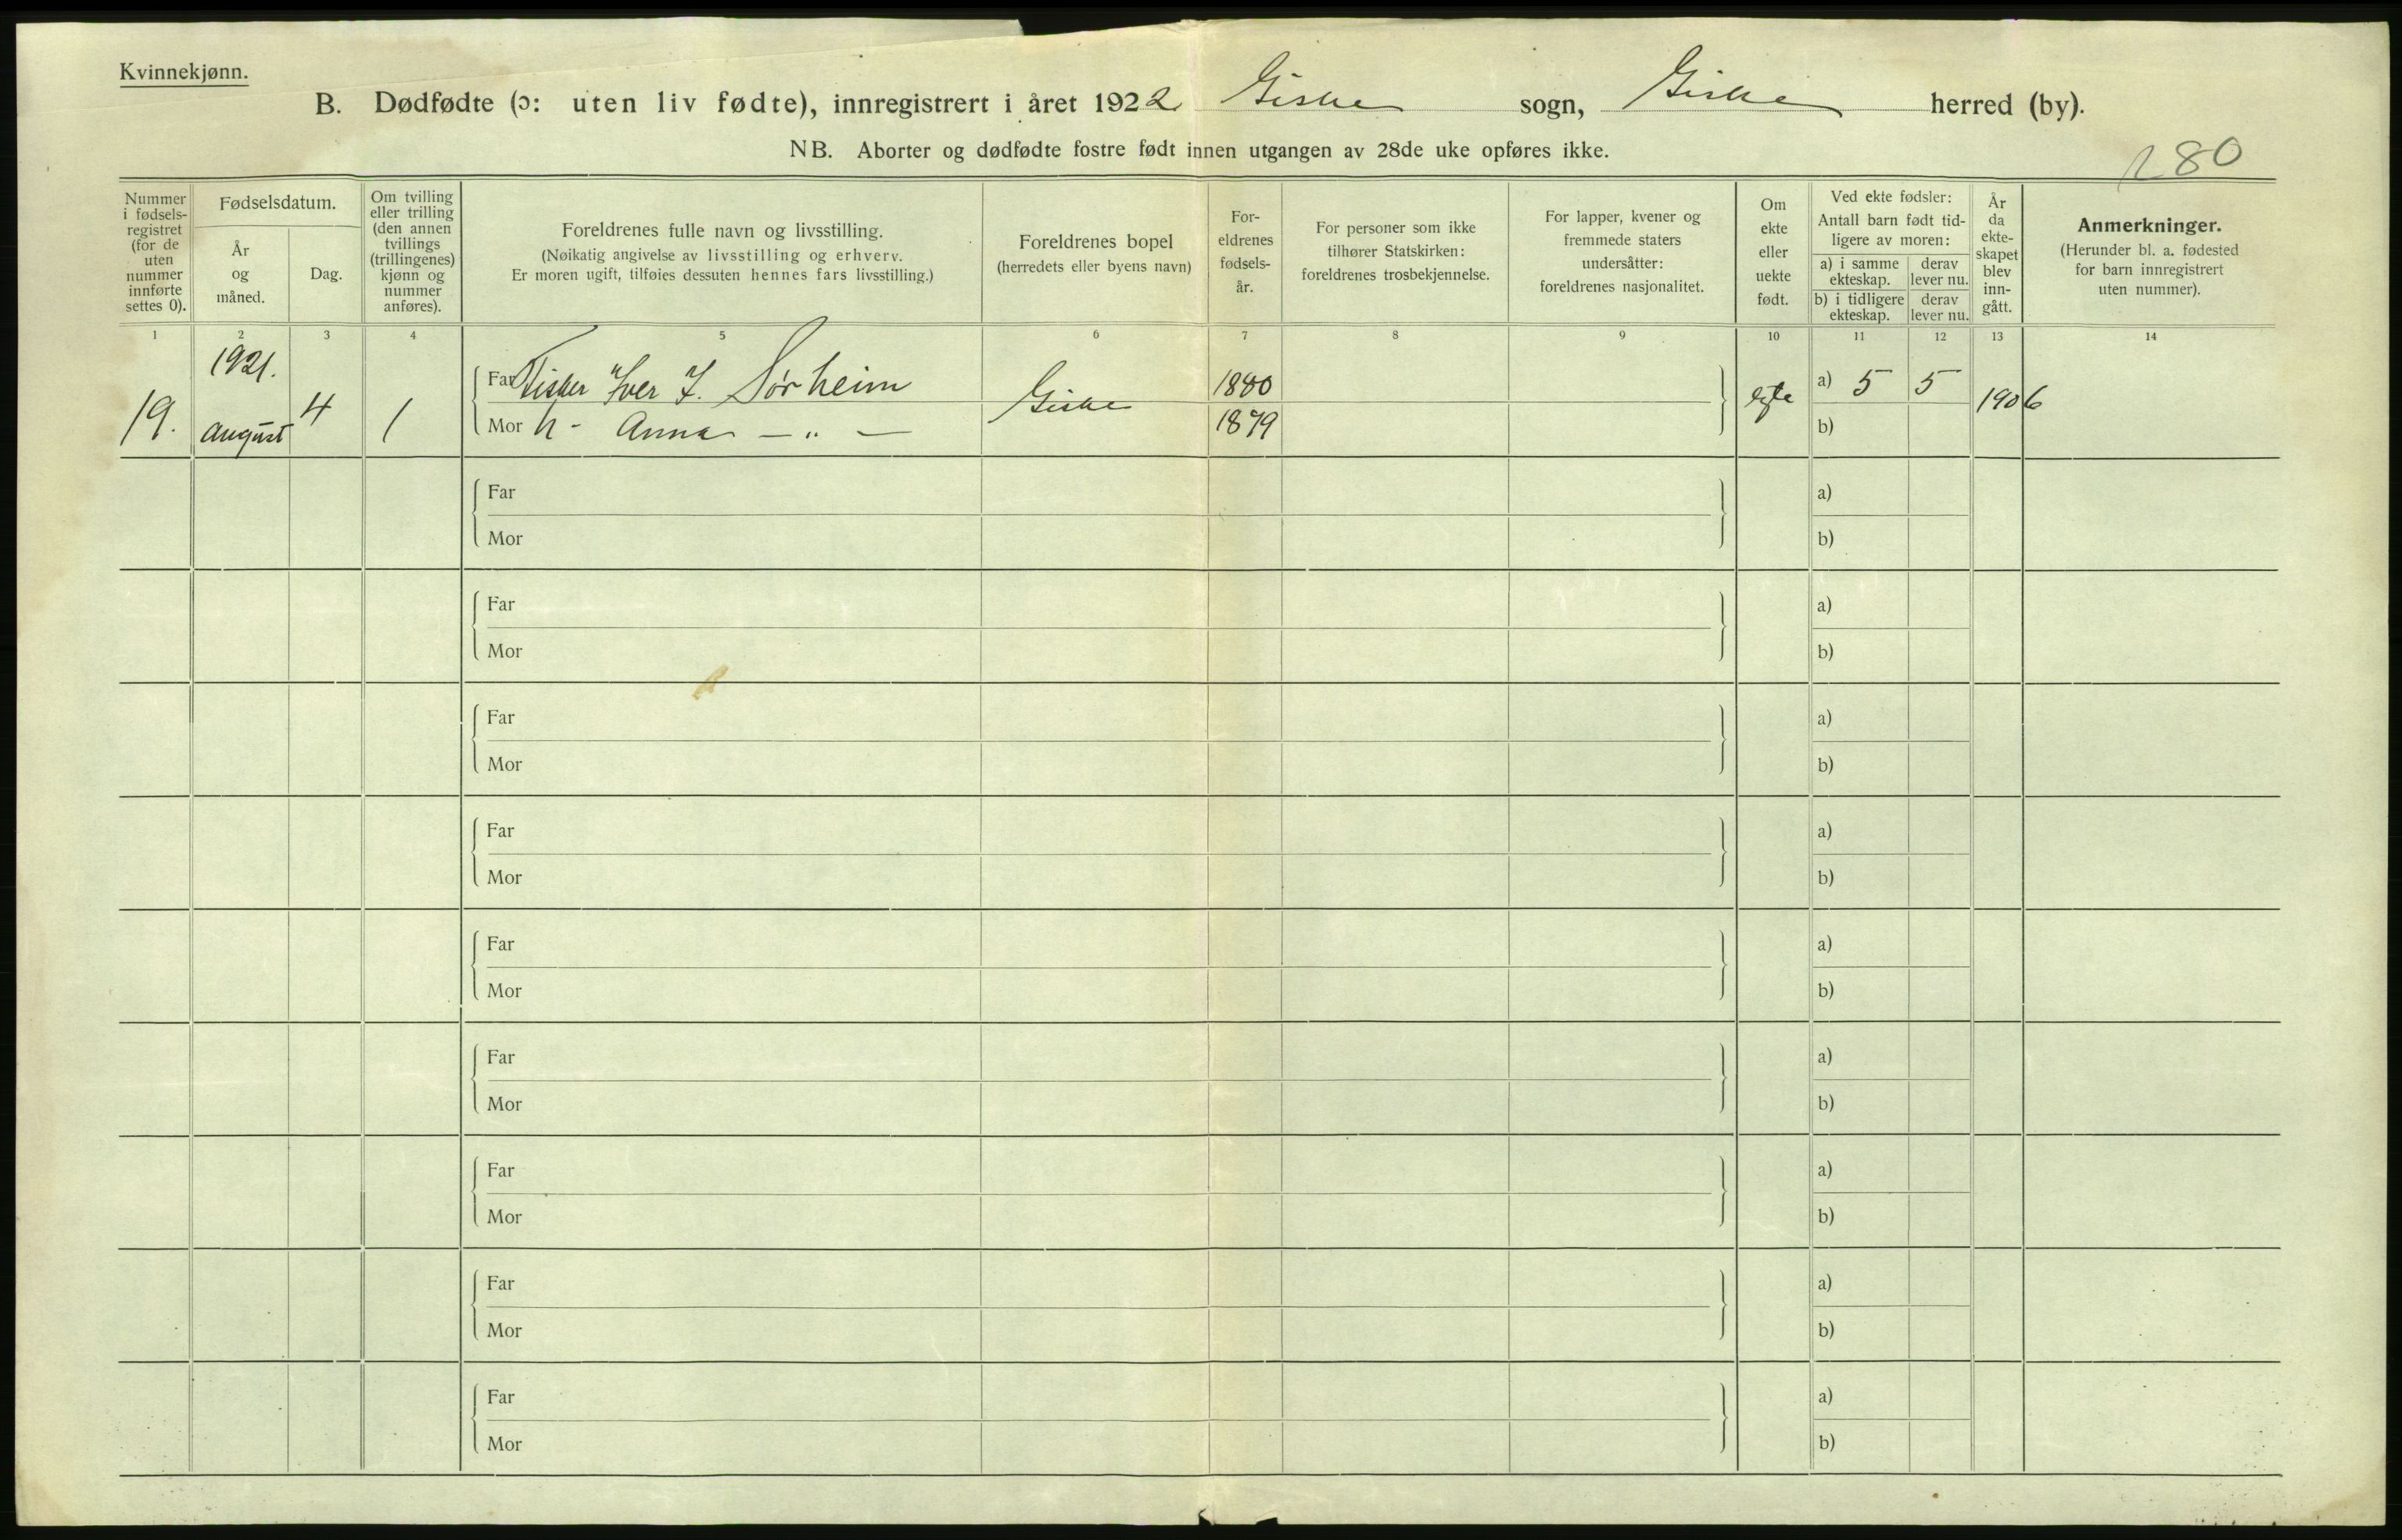 Kvinnekjønn.
B. Dødfødte (ɔ: uten liv fødte), innregistrert i året 1922 Giske sogn, Giske herred (by).
NB. Aborter og dødfødte fostre født innen utgangen av 28de uke opføres ikke.
180
Nummer i fødsels-registret (for de uten nummer innførte settes 0).
Fødselsdatum.
År og måned.
Dag.
Om tvilling eller trilling (den annen tvillings (trillingenes) kjønn og nummer anføres).
Foreldrenes fulle navn og livsstilling.
(Nøikatig angivelse av livsstilling og erhverv.
Er moren ugift, tilføies dessuten hennes fars livsstilling.)
Foreldrenes bopel
(herredets eller byens navn)
For-eldrenes fødsels-år.
For personer som ikke tilhører Statskirken: foreldrenes trosbekjennelse.
For lapper, kvener og fremmede staters undersåtter: foreldrenes nasjonalitet.
Om ekte eller uekte født.
Ved ekte fødsler:
Antall barn født tid-ligere av moren:
a) i samme ekteskap.
derav lever nu.
b) i tidligere ekteskap.
derav lever nu.
År da ekte-skapet blev inn-gått.
Anmerkninger.
(Herunder bl. a. fødested for barn innregistrert uten nummer).
1 2 3 4 5 6 7 8 9 10 11 12 13 14
1921.
Far Fisker Iver I. Sørheim 1880 a) 5 5
19. august 4 1 Giske 1906
Mor h- Anna — " — 1879 b)
Far a)
Mor b)
Far a)
Mor b)
Far a)
Mor b)
Far a)
Mor b)
Far a)
Mor b)
Far a)
Mor b)
Far a)
Mor b)
Far a)
Mor b)
Far a)
Mor b)